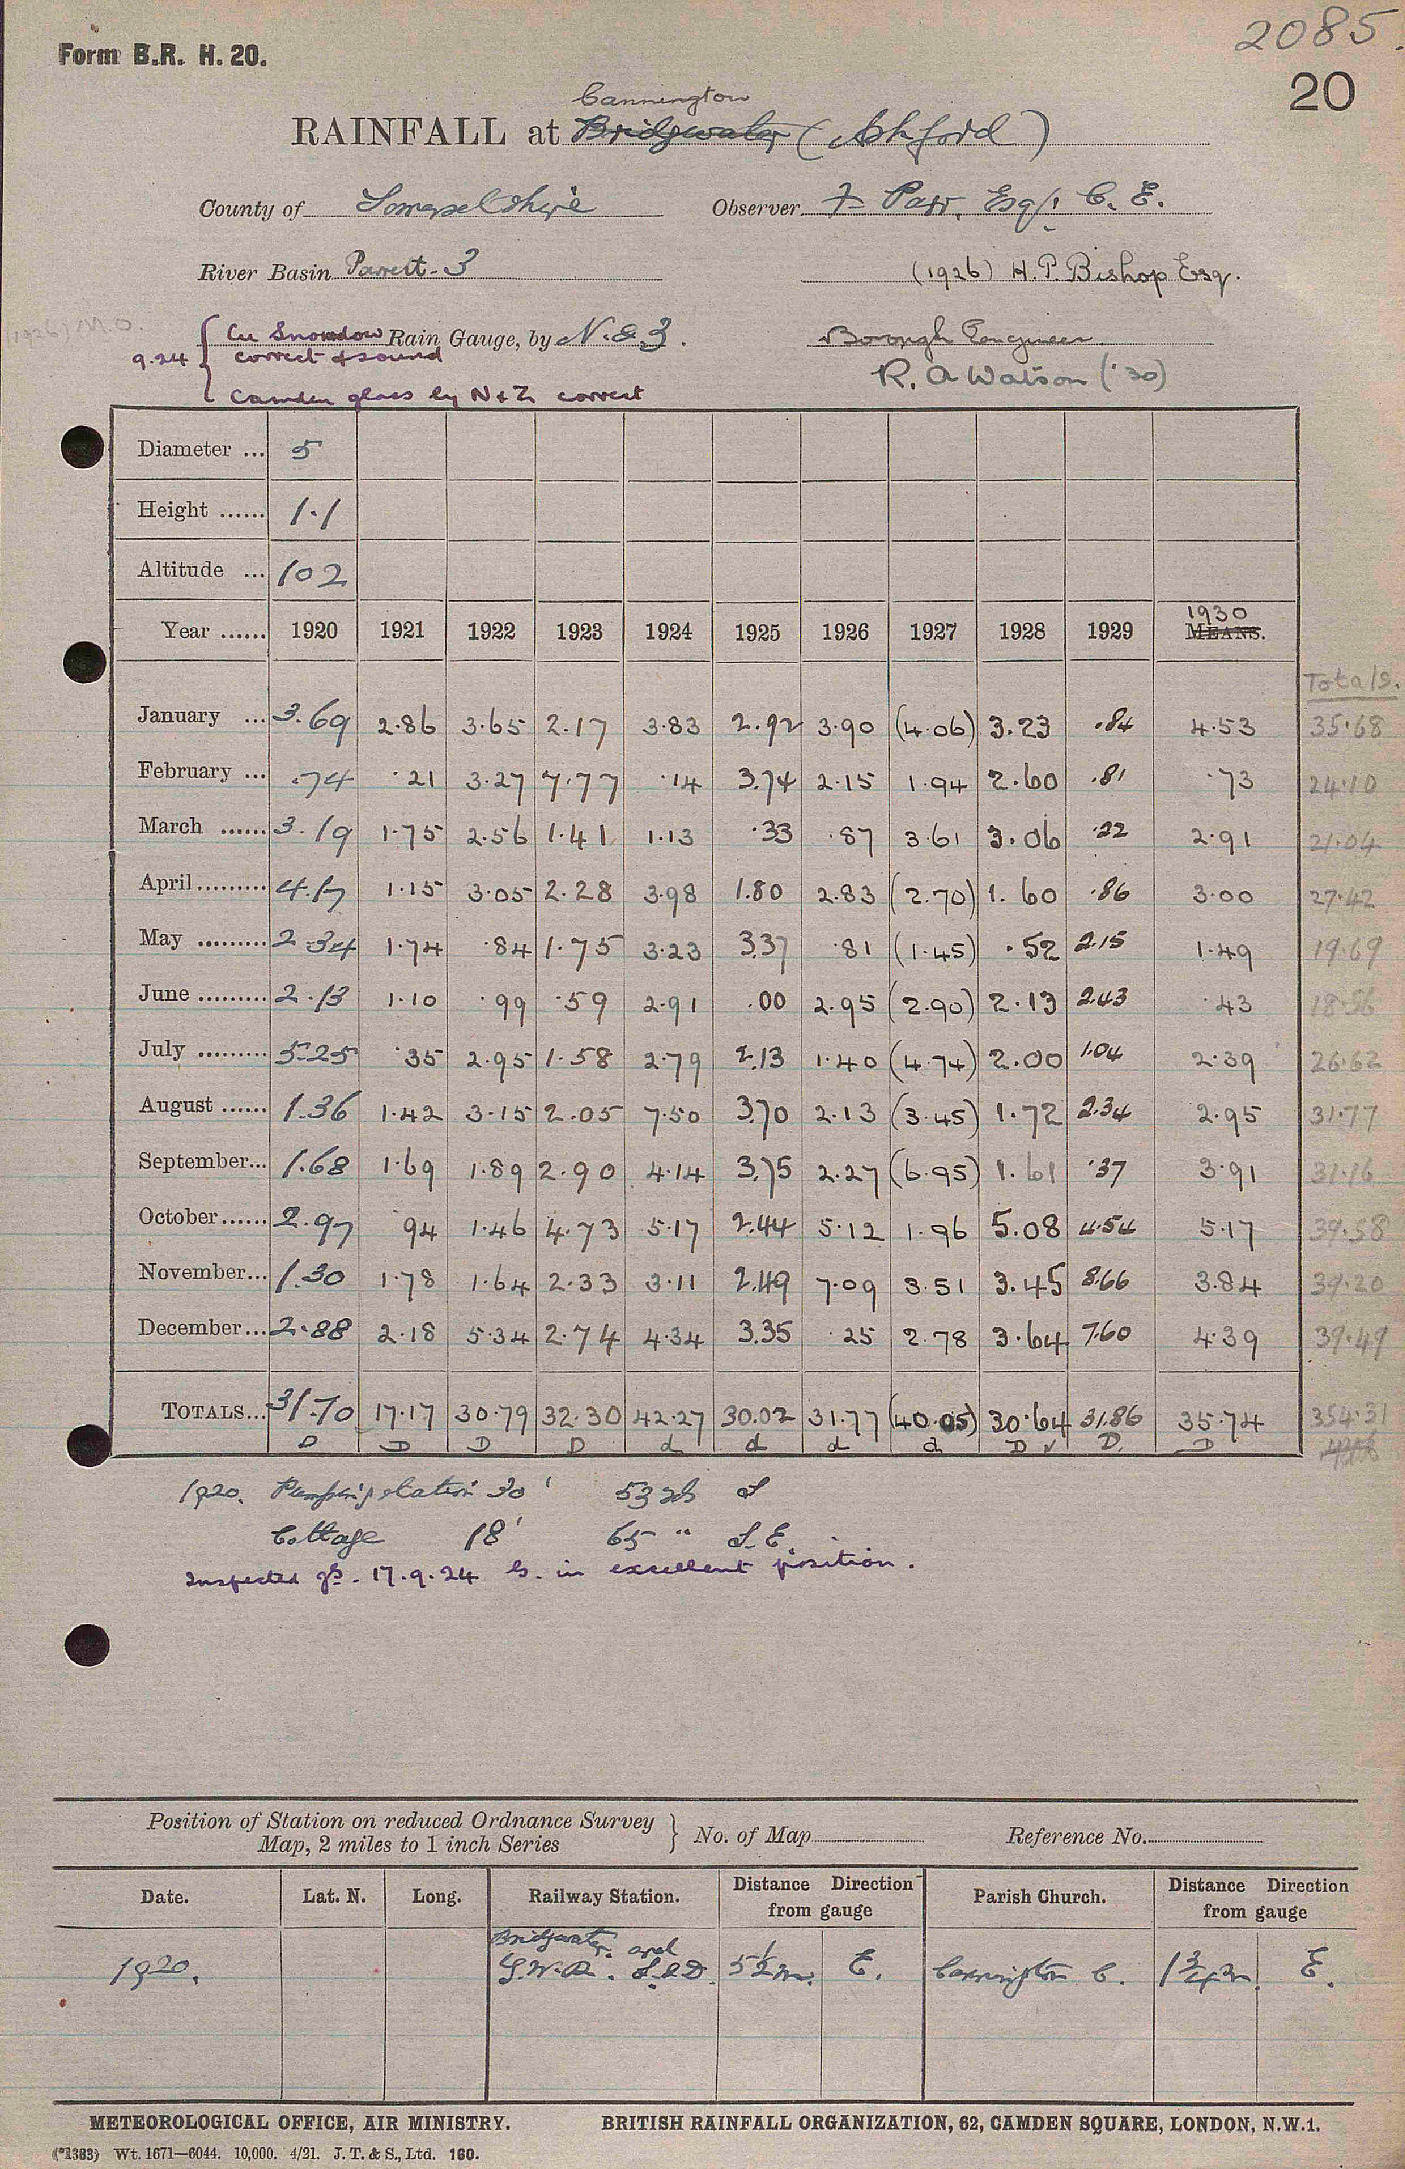 2085.
Form B.R. H. 20.
20
Cannington
RAINFALL at Bridgwater (Ashford)
County of Somersetshire Observer F Parr, Esqr. C. E.
River Basin Parrett - 3 (1926) H. P. Bishop Esq.
(1926) M.O.
Cu Snowdon Rain Gauge, by N. & Z. Borough Engineer
9.24 correct & sound
R. A Watson ('30)
Camden glass by N & Z. correct
Diameter ... 5
Height ...... 1.1
Altitude ... 102
1930
Year ...... 1920 1921 1922 1923 1924 1925 1926 1927 1928 1929 MEANS.
Totals.
January ... 3.69 2.86 3.65 2.17 3.83 2.92 3.90 (4.06) 3.23 .84 4.53 35.68
February ... .74 .21 3.27 7.77 .14 3.74 2.15 1.94 2.60 .81 .73 24.10
March ...... 3.19 1.75 2.56 1.41 1.13 .33 .87 3.61 3.06 .22 2.91 21.04
April ......... 4.17 1.15 3.05 2.28 3.98 1.80 2.83 (2.70) 1.60 .86 3.00 27.42
May ......... 2.34 1.74 .84 1.75 3.23 3.37 .81 (1.45) .52 2.15 1.49 19.69
June ......... 2.13 1.10 .99 .59 2.91 .00 2.95 (2.90) 2.13 2.43 .43 18.56
July ......... 5.25 .35 2.95 1.58 2.79 2.13 1.40 (4.74) 2.00 1.04 2.39 26.62
August ...... 1.36 1.42 3.15 2.05 7.50 3.70 2.13 (3.45) 1.72 2.34 2.95 31.77
September... 1.68 1.69 1.89 2.90 4.14 3.75 2.27 (6.95) 1.61 .37 3.91 31.16
October...... 2.97 .94 1.46 4.73 5.17 2.44 5.12 1.96 5.08 4.54 5.17 39.58
November... 1.30 1.78 1.64 2.33 3.11 2.49 7.09 3.51 3.45 8.66 3.84 39.20
December... 2.88 2.18 5.34 2.74 4.34 3.35 .25 2.78 3.64 7.60 4.39 39.49
TOTALS... 31.70 17.17 30.79 32.30 42.27 30.02 31.77 (40.05) 30.64 31.86 35.74 354.31
D D D D d d d d D v D. D
1920. Pumping station 30' 53 S
Cottage 18' 65 " S. E.
Inspected 17.9.24 in excellent position.
Position of Station on reduced Ordnance Survey
Map, 2 miles to 1 inch Series } No. of Map Reference No.
Date. Lat. N. Long. Railway Station. Distance Direction from gauge Parish Church. Distance Direction from gauge
Bridgwater. and
1920. G.W.R. S.&D. 5½ m. E. Cannington C. 1¾ m. E.
METEOROLOGICAL OFFICE, AIR MINISTRY. BRITISH RAINFALL ORGANIZATION, 62, CAMDEN SQUARE, LONDON, N.W.1.
(*1383) Wt. 1671—6044. 10,000. 4/21. J. T. & S., Ltd. 160.